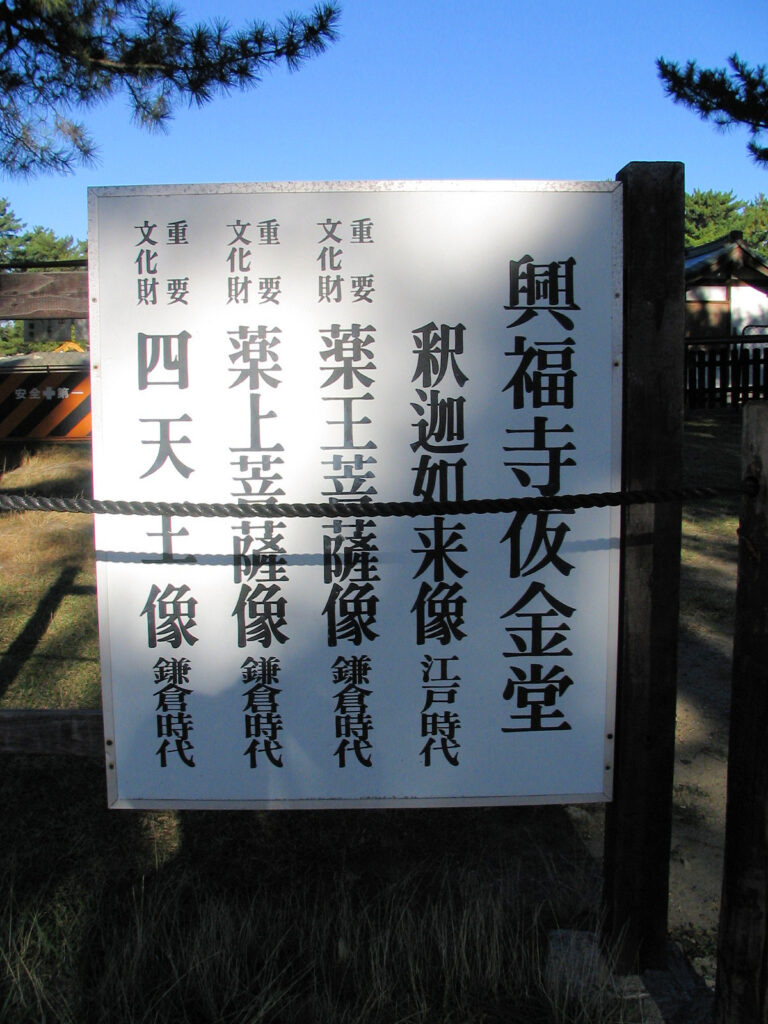 興福寺仮金堂
釈迦如来像 江戸時代
重要文化財 薬王菩薩像 鎌倉時代
重要文化財 薬上菩薩像 鎌倉時代
重要文化財 四天王像 鎌倉時代
安全✚第一